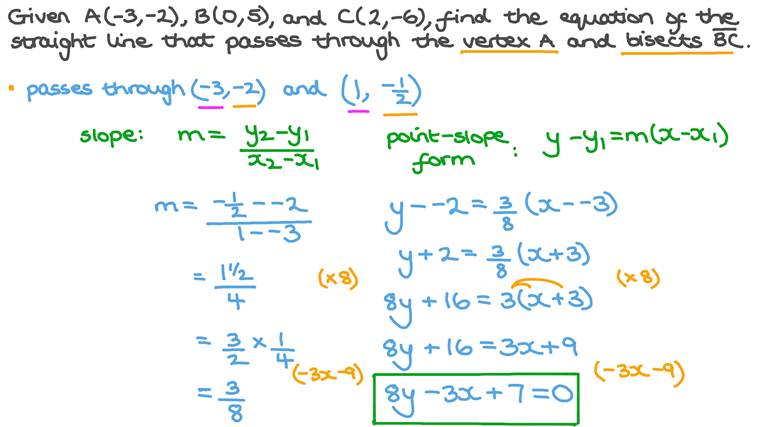 Given A(-3,-2), B(0,5), and C(2,-6), find the equation of the
straight line that passes through the vertex A and bisects B̅C̅.
• passes through (-3,-2) and (1, -1/2)
slope: m = (y₂-y₁)/(x₂-x₁)
point-slope form: y-y₁=m(x-x₁)
m = (-1/2 - -2)/(1 - -3)
= 1 1/2 / 4 (×8)
= 3/2 × 1/4 (-3x-9)
= 3/8
y - -2 = 3/8 (x - -3)
y + 2 = 3/8 (x+3)
8y + 16 = 3(x+3) (×8)
8y + 16 = 3x + 9
8y - 3x + 7 = 0 (-3x-9)